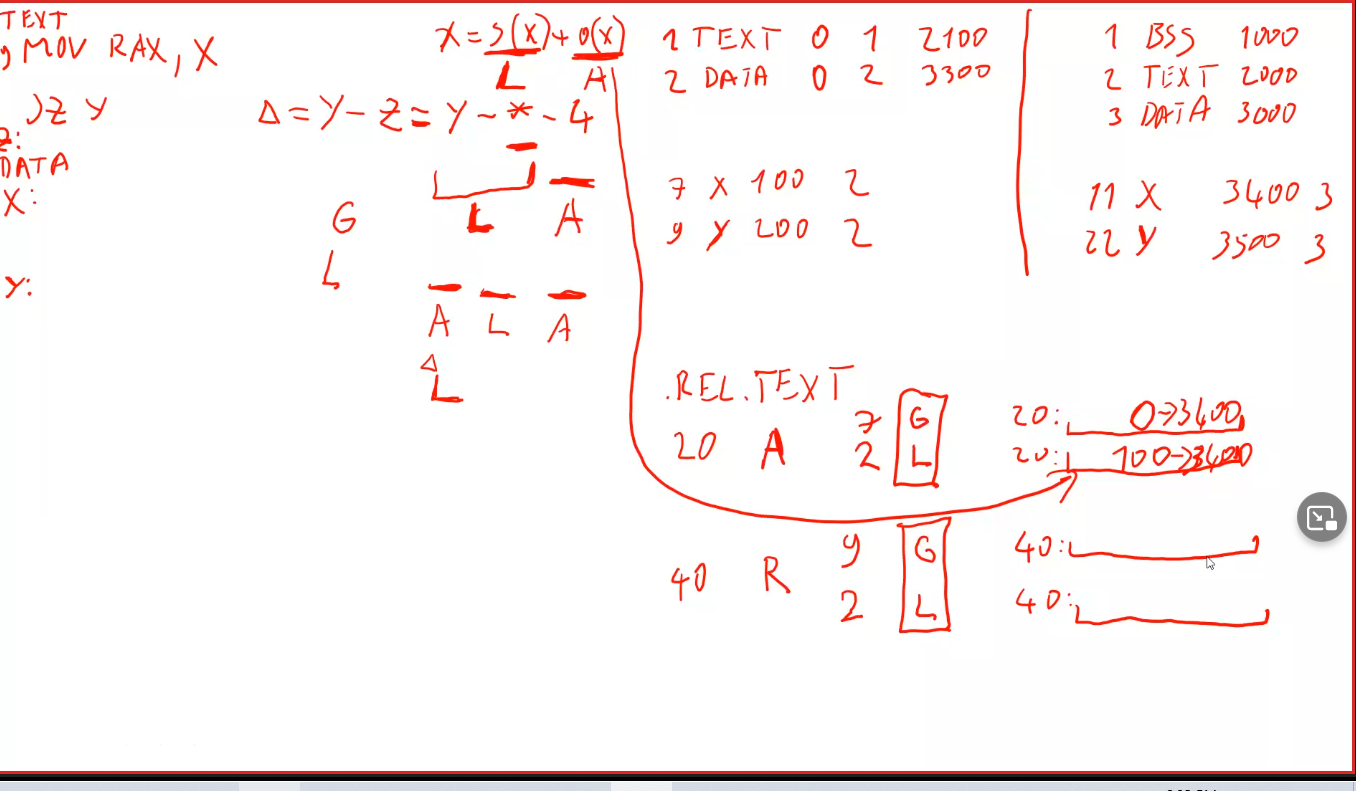 TEXT
MOV RAX, X
JZ Y
Z:
DATA
X:
Y:
X = S(X) + O(X)
L A
Δ = Y - Z = Y - * - 4
G L A
L
A L A
Δ
L
1 TEXT 0 1 2100
2 DATA 0 2 3300
7 X 100 2
9 Y 200 2
1 BSS 1000
2 TEXT 2000
3 DATA 3000
11 X 3400 3
22 Y 3500 3
.REL.TEXT
20 A 7 G
2 L
20: 0→3400
20: 100→3400
40 R 9 G
2 L
40:
40: